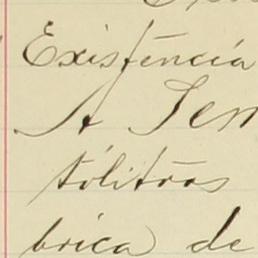 Existência
A Sen
tólitros
brica de